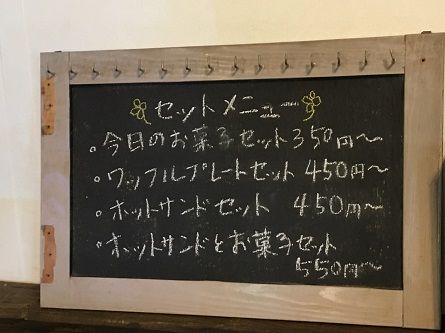 セットメニュー
・今日のお菓子セット350円〜
・ワッフルプレートセット 450円〜
・ホットサンドセット 450円〜
・ホットサンドとお菓子セット
550円〜